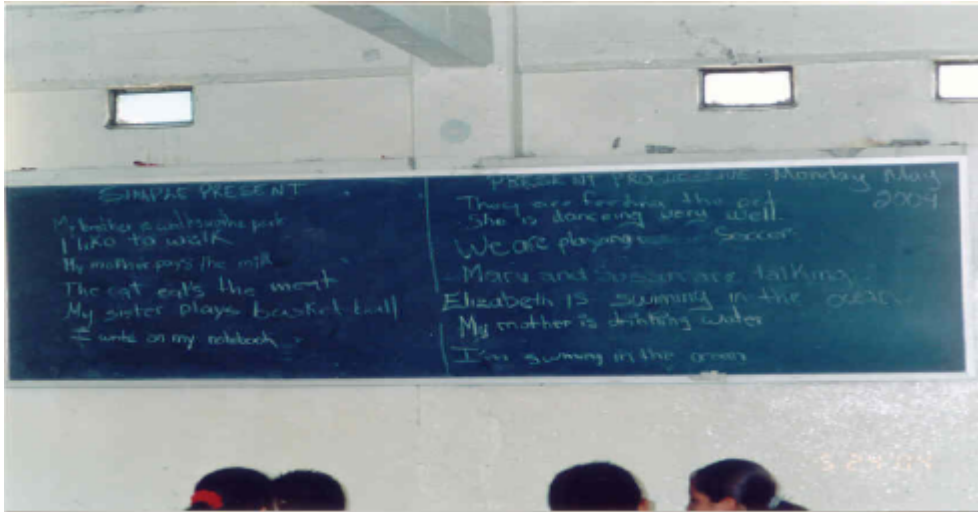 SIMPLE PRESENT
My brother is walks in the park
I like to walk
My mother pays the milk
The cat eat's the meat
My sister plays basket ball
I write on my notebook
PRESENT PROGRESSIVE Monday May
2004
They are feeding the
She is danceing very well
We are playing Soccer
Mary and Sussan are talking
Elizabeth is swiming in the ocean
My mother is drinking water
I'm swiming in the ocean
5 24 '04